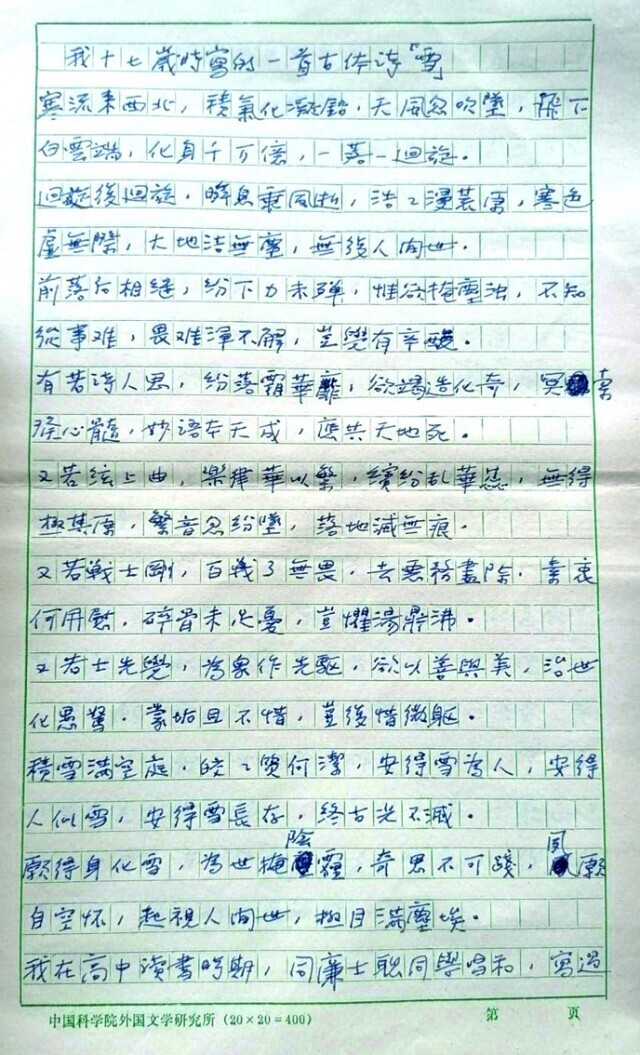 我十七歲時寫的一首古体诗"雪
寒流東西北，積氣化凝鉛，天風忽吹墜，飛下
白雲端，化身千万億，一落一迴旋。
迴旋復迴旋，瞬息乘風逝，浩々漫荒原，寒色
虛無際，大地洁無塵，無復人间世。
前落后相继，纷下力未殫，惟欲掩塵浊，不知
從事难，畏难渾不解，豈覺有辛酸。
有若诗人思，纷落霏華靡，欲竭造化奇，冥索
瘁心髓，妙语本天成，應共天地死。
又若絃上曲，樂律華以繁，繽纷乱華蕊，無得
極其原，繁音忽纷墜，落地滅無痕。
又若戰士剛，百戰了無畏，去惡務盡除，素衷
何用慰，碎骨未足憂，豈懼湯鼎沸。
又若士先覺，為衆作先驅，欲以善與美，治世
化愚驽，蒙垢且不惜，豈復惜微軀。
積雪满空庭，皎々質何潔，安得雪為人，安得
人似雪，安得雪長存，終古光不滅。
願得身化雪，為世掩陰霾，奇思不可踐，夙願
自空怀，起視人间世，極目满塵埃。
我在高中讀書時期，同廉士聰同學唱和，寫过
中国科学院外国文学研究所（20×20=400） 第 页